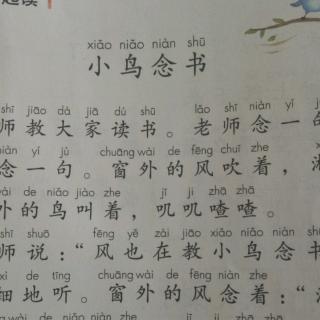 起读
xiǎo niǎo niàn shū
小鸟念书
shī jiāo dà jiā dú shū lǎo shī niàn yí jù
师教大家读书。老师念一句
niàn yí jù chuāng wài de fēng chuī zhe
念一句。窗外的风吹着，
wài de niǎo jiào zhe jī jī zhā zhā
外的鸟叫着，叽叽喳喳。
shī shuō fēng yě zài jiāo xiǎo niǎo niàn shū
师说：“风也在教小鸟念书
xì de tīng chuāng wài de fēng niàn zhe
细地听。窗外的风念着：“